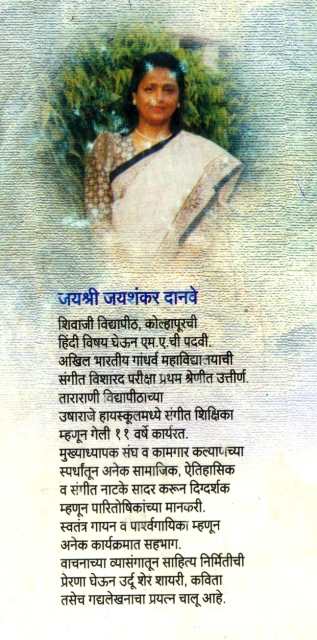 जयश्री जयशंकर दानवे
शिवाजी विद्यापीठ, कोल्हापूरची
हिंदी विषय घेऊन एम.ए.ची पदवी.
अखिल भारतीय गांधर्व महाविद्यालयाची
संगीत विशारद परीक्षा प्रथम श्रेणीत उत्तीर्ण.
ताराराणी विद्यापीठाच्या
उषाराजे हायस्कूलमध्ये संगीत शिक्षिका
म्हणून गेली ११ वर्षे कार्यरत.
मुख्याध्यापक संघ व कामगार कल्याणच्या
स्पर्धांतून अनेक सामाजिक, ऐतिहासिक
व संगीत नाटके सादर करून दिग्दर्शक
म्हणून पारितोषिकांच्या मानकरी.
स्वतंत्र गायन व पार्श्वगायिका म्हणून
अनेक कार्यक्रमात सहभाग.
वाचनाच्या व्यासंगातून साहित्य निर्मितीची
प्रेरणा घेऊन उर्दू शेर शायरी, कविता
तसेच गद्यलेखनाचा प्रयत्न चालू आहे.